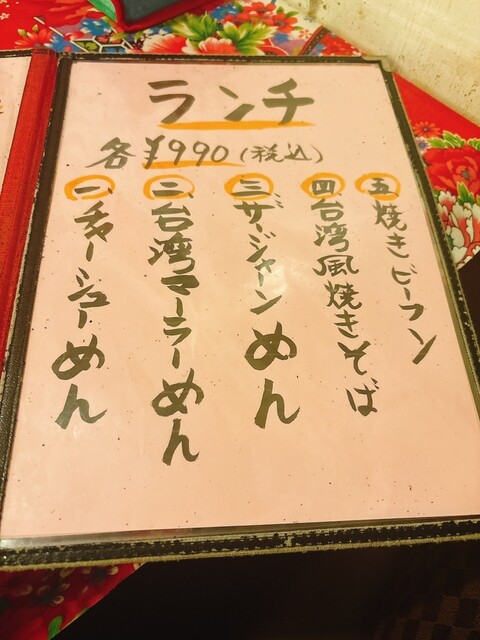 ランチ
各¥990(税込)
一 チャーシューめん
二 台湾マーラーめん
三 ザージャーンめん
四 台湾風焼きそば
五 焼きビーフン